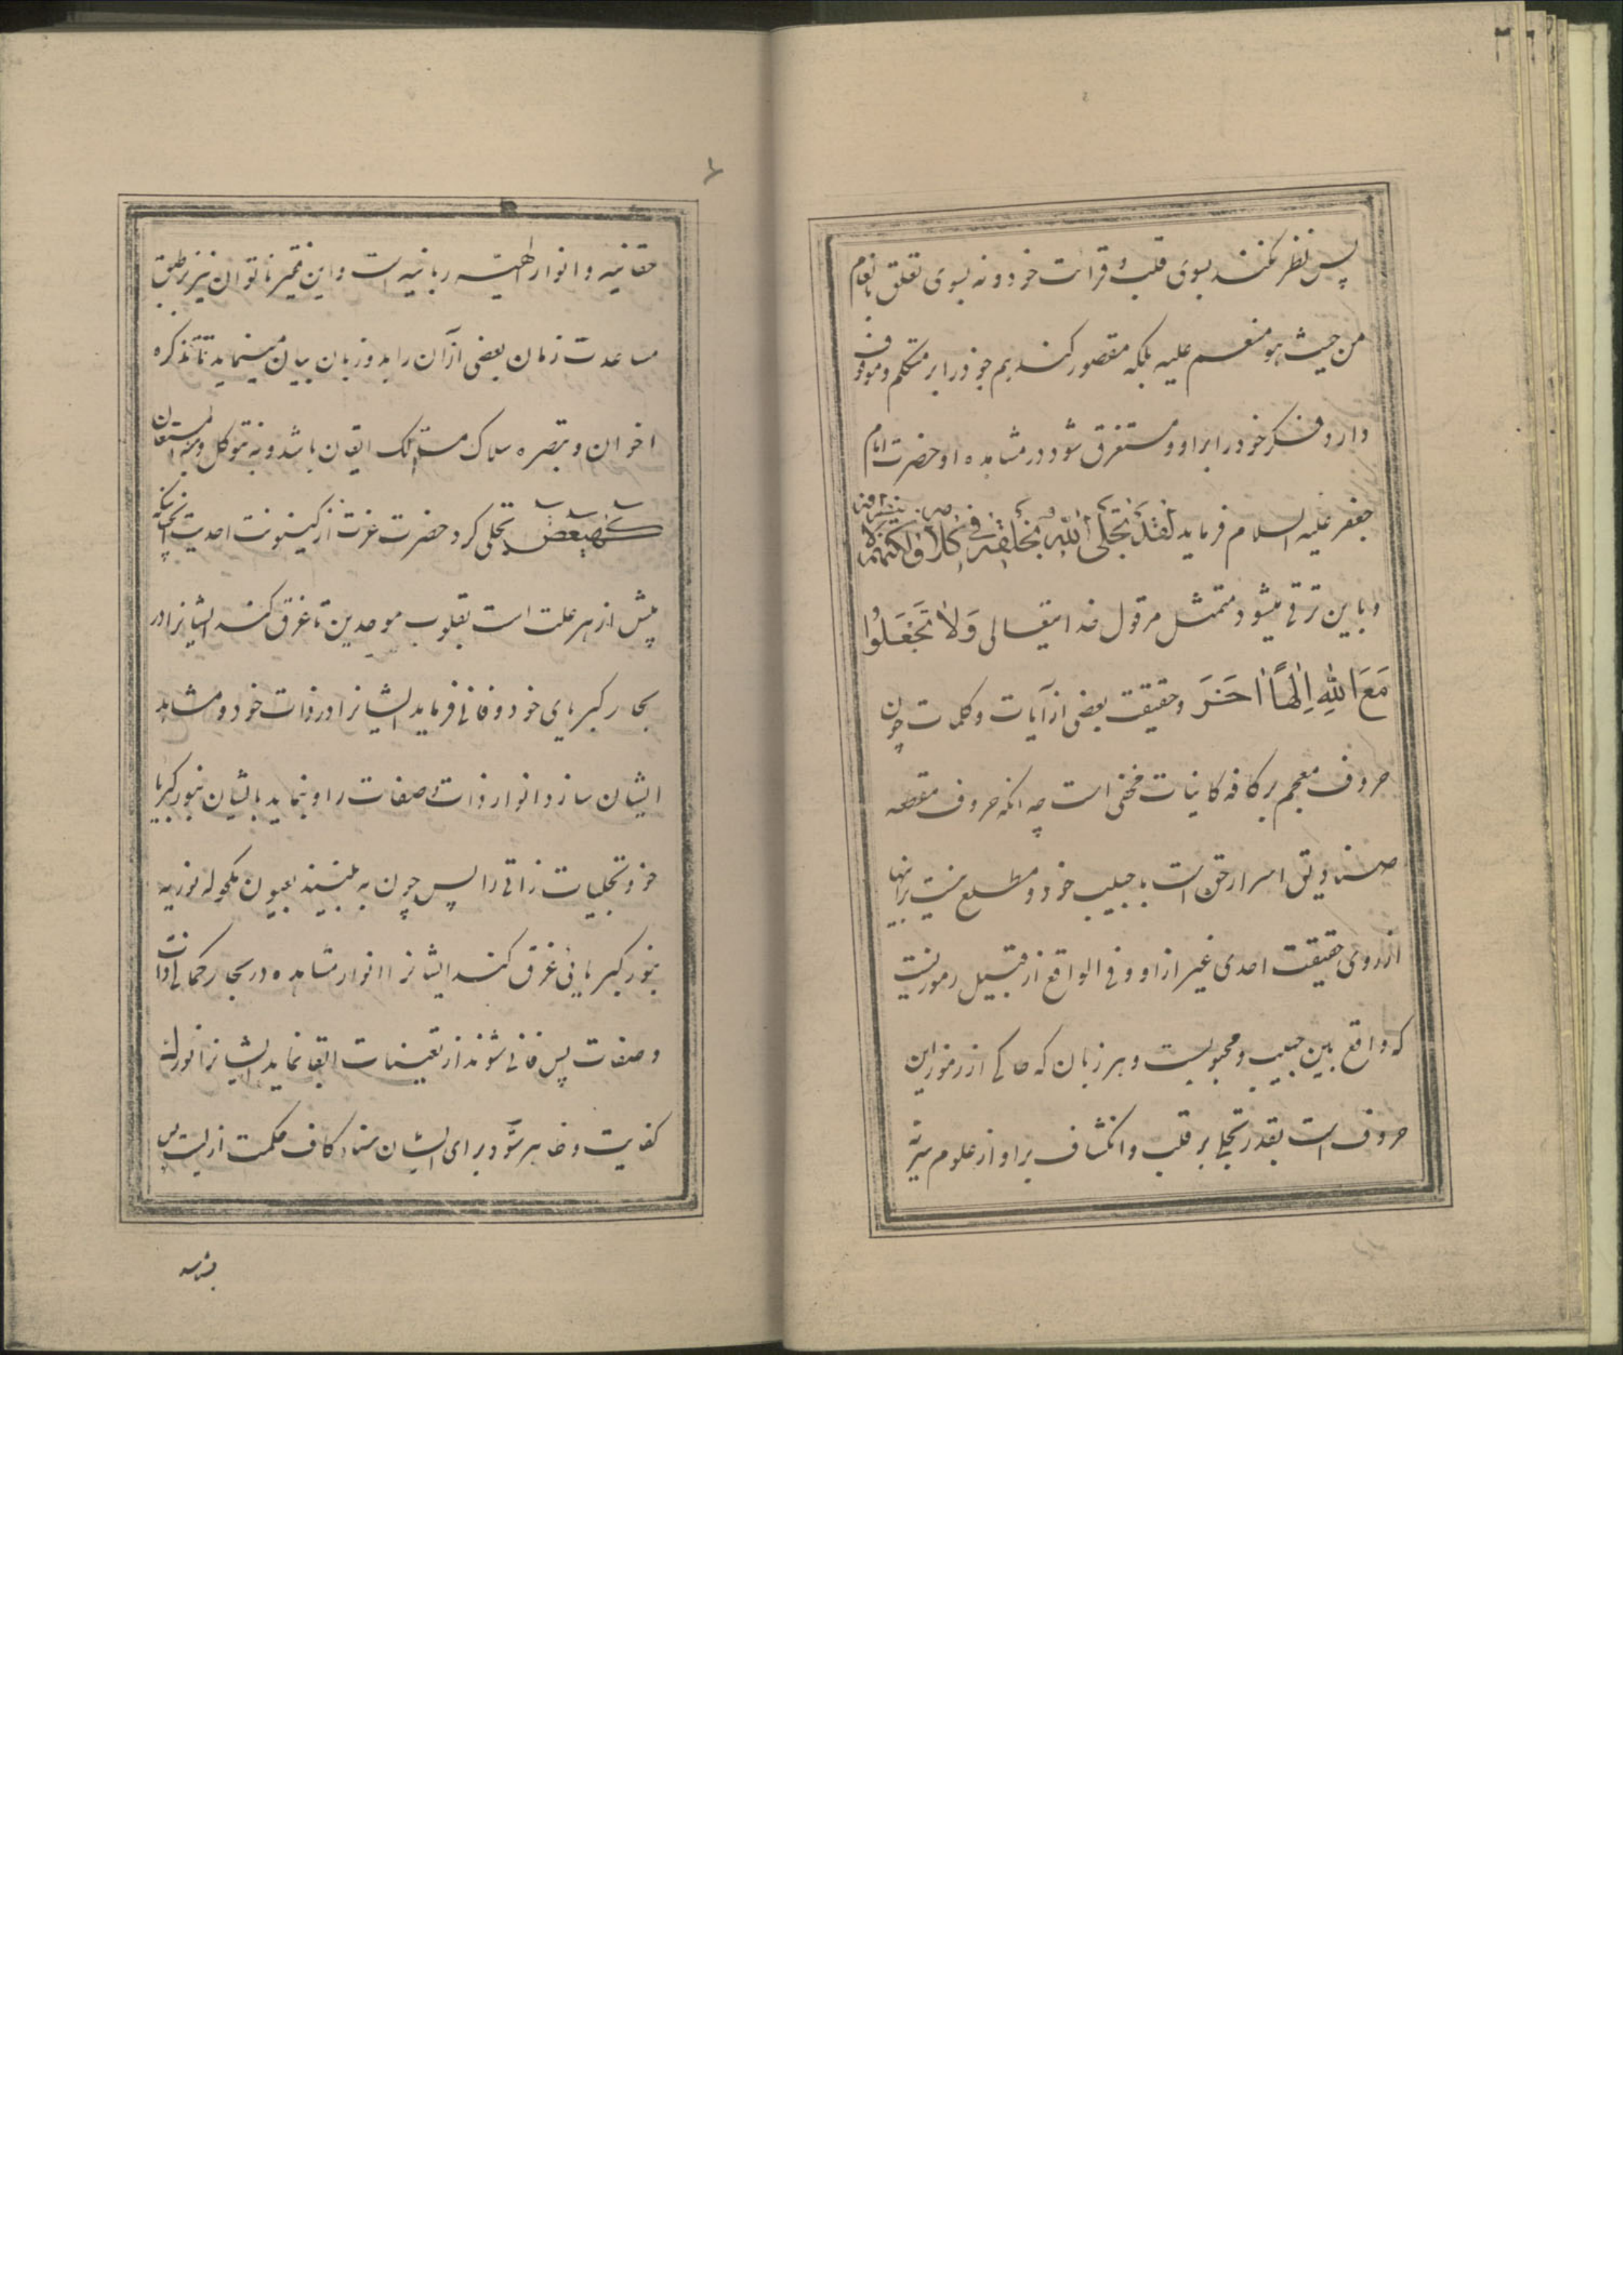 پس نظر نکند بسوی قلب و قرائت خود و نه بسوی تعلق انعام
من حیث هو منعم علیه بلکه مقصور کند هم خود را بر متکلم و موقوف
دارد فکر خود را بر او و مستغرق شود در مشاهده او حضرت امام
جعفر علیه السلام فرماید لَقَدْ تَجَلَّی اللهُ لِخَلْقِهِ فی کَلامِهِ وَلکِنَّهُمْ لا یُبْصِرُونَ
و باین ترقی میشود متمثل مر قول خدایتعالی وَلا تَجْعَلُوا
مَعَ اللهِ اِلهًا اخَرَ و حقیقت بعضی از آیات و کلمات چون
حروف معجم بر کافه کاینات مخفی است چه انکه حروف مقطعه
صنادیق اسرار حق است با حبیب خود و مطلع نیست برانها
از روی حقیقت احدی غیر از او و فی الواقع از قبیل رموزیست
که واقع بین حبیب و محبوبست و هر زبان که حاکی از رموز این
حروف است بقدر تجلی بر قلب و انکشاف بر او از علوم سریه
حقانیه و انوار الهیه ربانیه است و این فقیر ناتوان نیز بر طبق
مساعدت زمان بعضی از آن را بدو زبان بیان مینماید تا تذکره
اخوان و تبصره سلاک مسالک ایقان باشد و به نتوکل و به نستعان
کهیعص تجلی کرد حضرت عزت از کینونت احدیت انچنانکه
پیش از هر علت است بقلوب موحدین تا غرق کند ایشانرا در
بحار کبریای خود و فانی فرماید ایشانرا در ذات خود و مشاهد
ایشان سازد انوار ذات و صفات را و بنماید بایشان بنور کبریا
خود تجلیات ذاتی را پس چون به بینند بعیون مکحوله نوریه
بنور کبریائی غرق کند ایشانرا انوار مشاهده در بحار حکمای ذات
و صفات پس فانی شوند از تعینات ابقا نماید ایشانرا نور
کفایت و ظاهر شود برای ایشان سناء کاف حکمت ازلیت پس